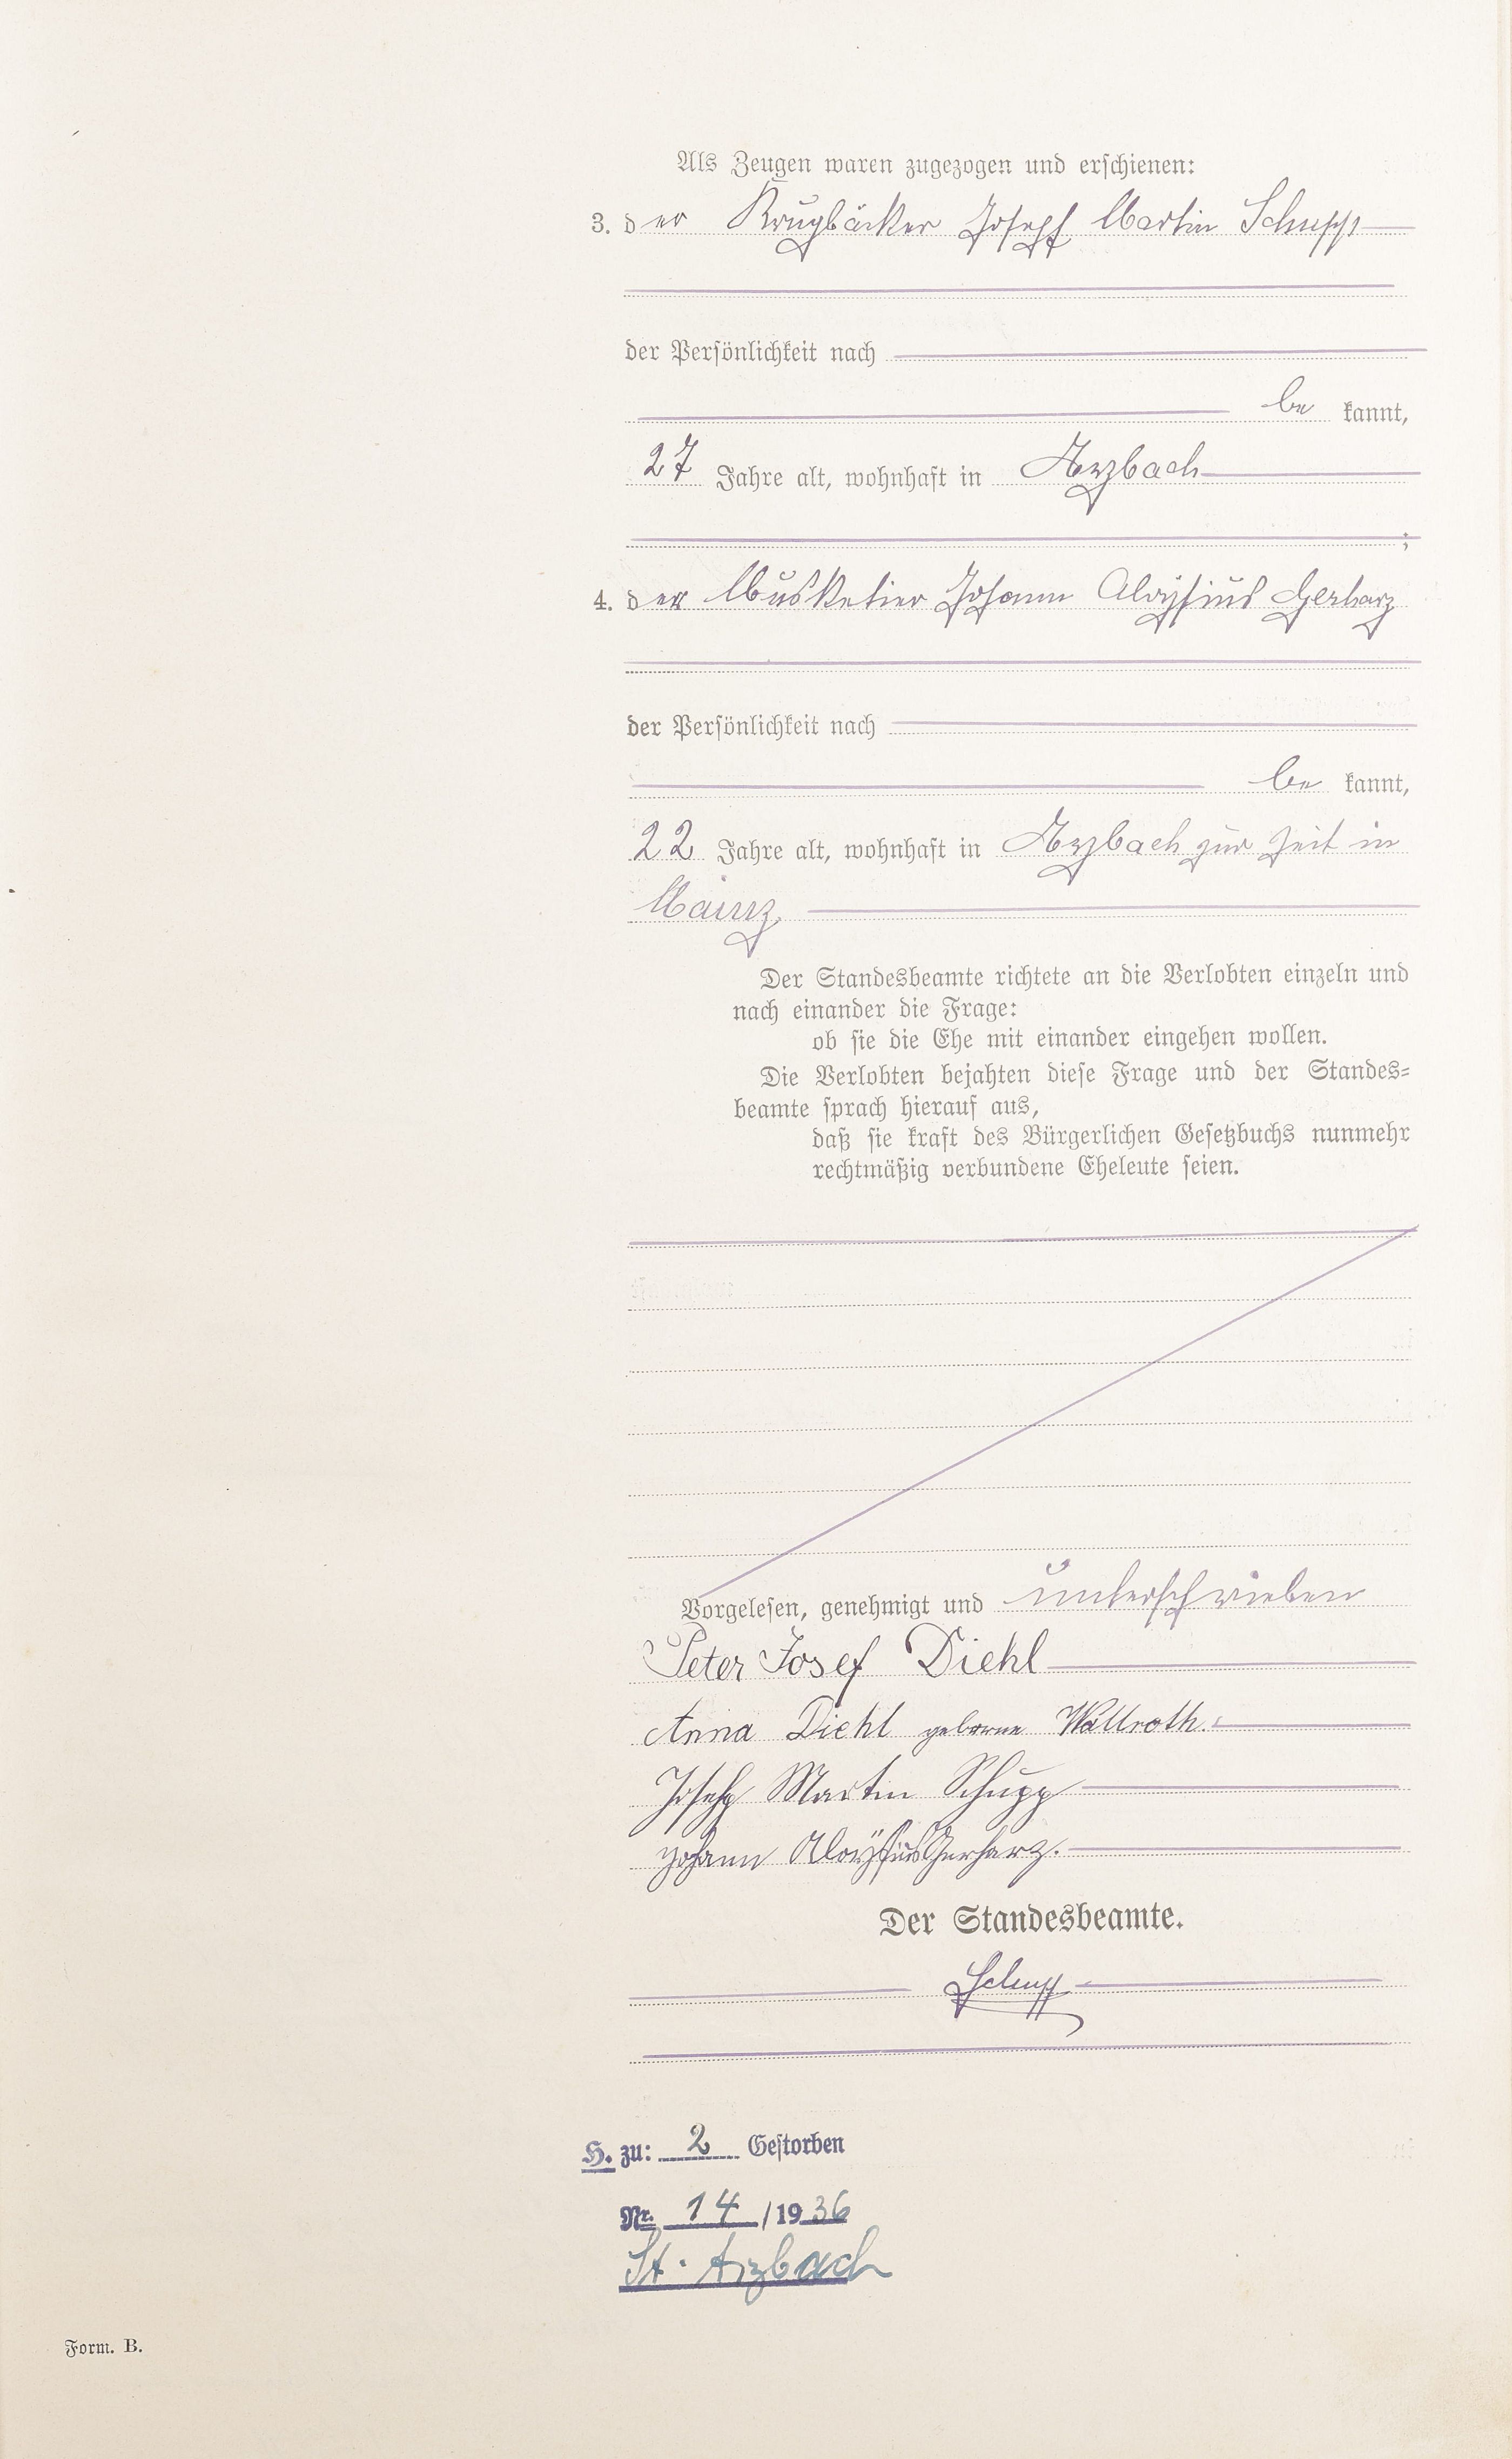 Als Zeugen waren zugezogen und erschienen:
3. der Krugbäcker Joseph Martin Schupp
der Persönlichkeit nach
be kannt,
27 Jahre alt, wohnhaft in Arzbach
;
4. der Musketier Johann Aloysius Gerharz
der Persönlichkeit nach
be kannt,
22 Jahre alt, wohnhaft in Arzbach zur Zeit in
Mainz
Der Standesbeamte richtete an die Verlobten einzeln und
nach einander die Frage:
ob sie die Ehe mit einander eingehen wollen.
Die Verlobten bejahten diese Frage und der Standes=
beamte sprach hierauf aus,
daß sie kraft des Bürgerlichen Gesetzbuchs nunmehr
rechtmäßig verbundene Eheleute seien.
Vorgelesen, genehmigt und unterschrieben
Peter Josef Diehl
Anna Diehl geborne Wallroth.
Joseph Martin Schupp
Johann Aloÿsius Gerharz.
Der Standesbeamte.
Schupp
H. zu: 2 Gestorben
Nr. 14 /1936
St. Arzbach
Form. B.